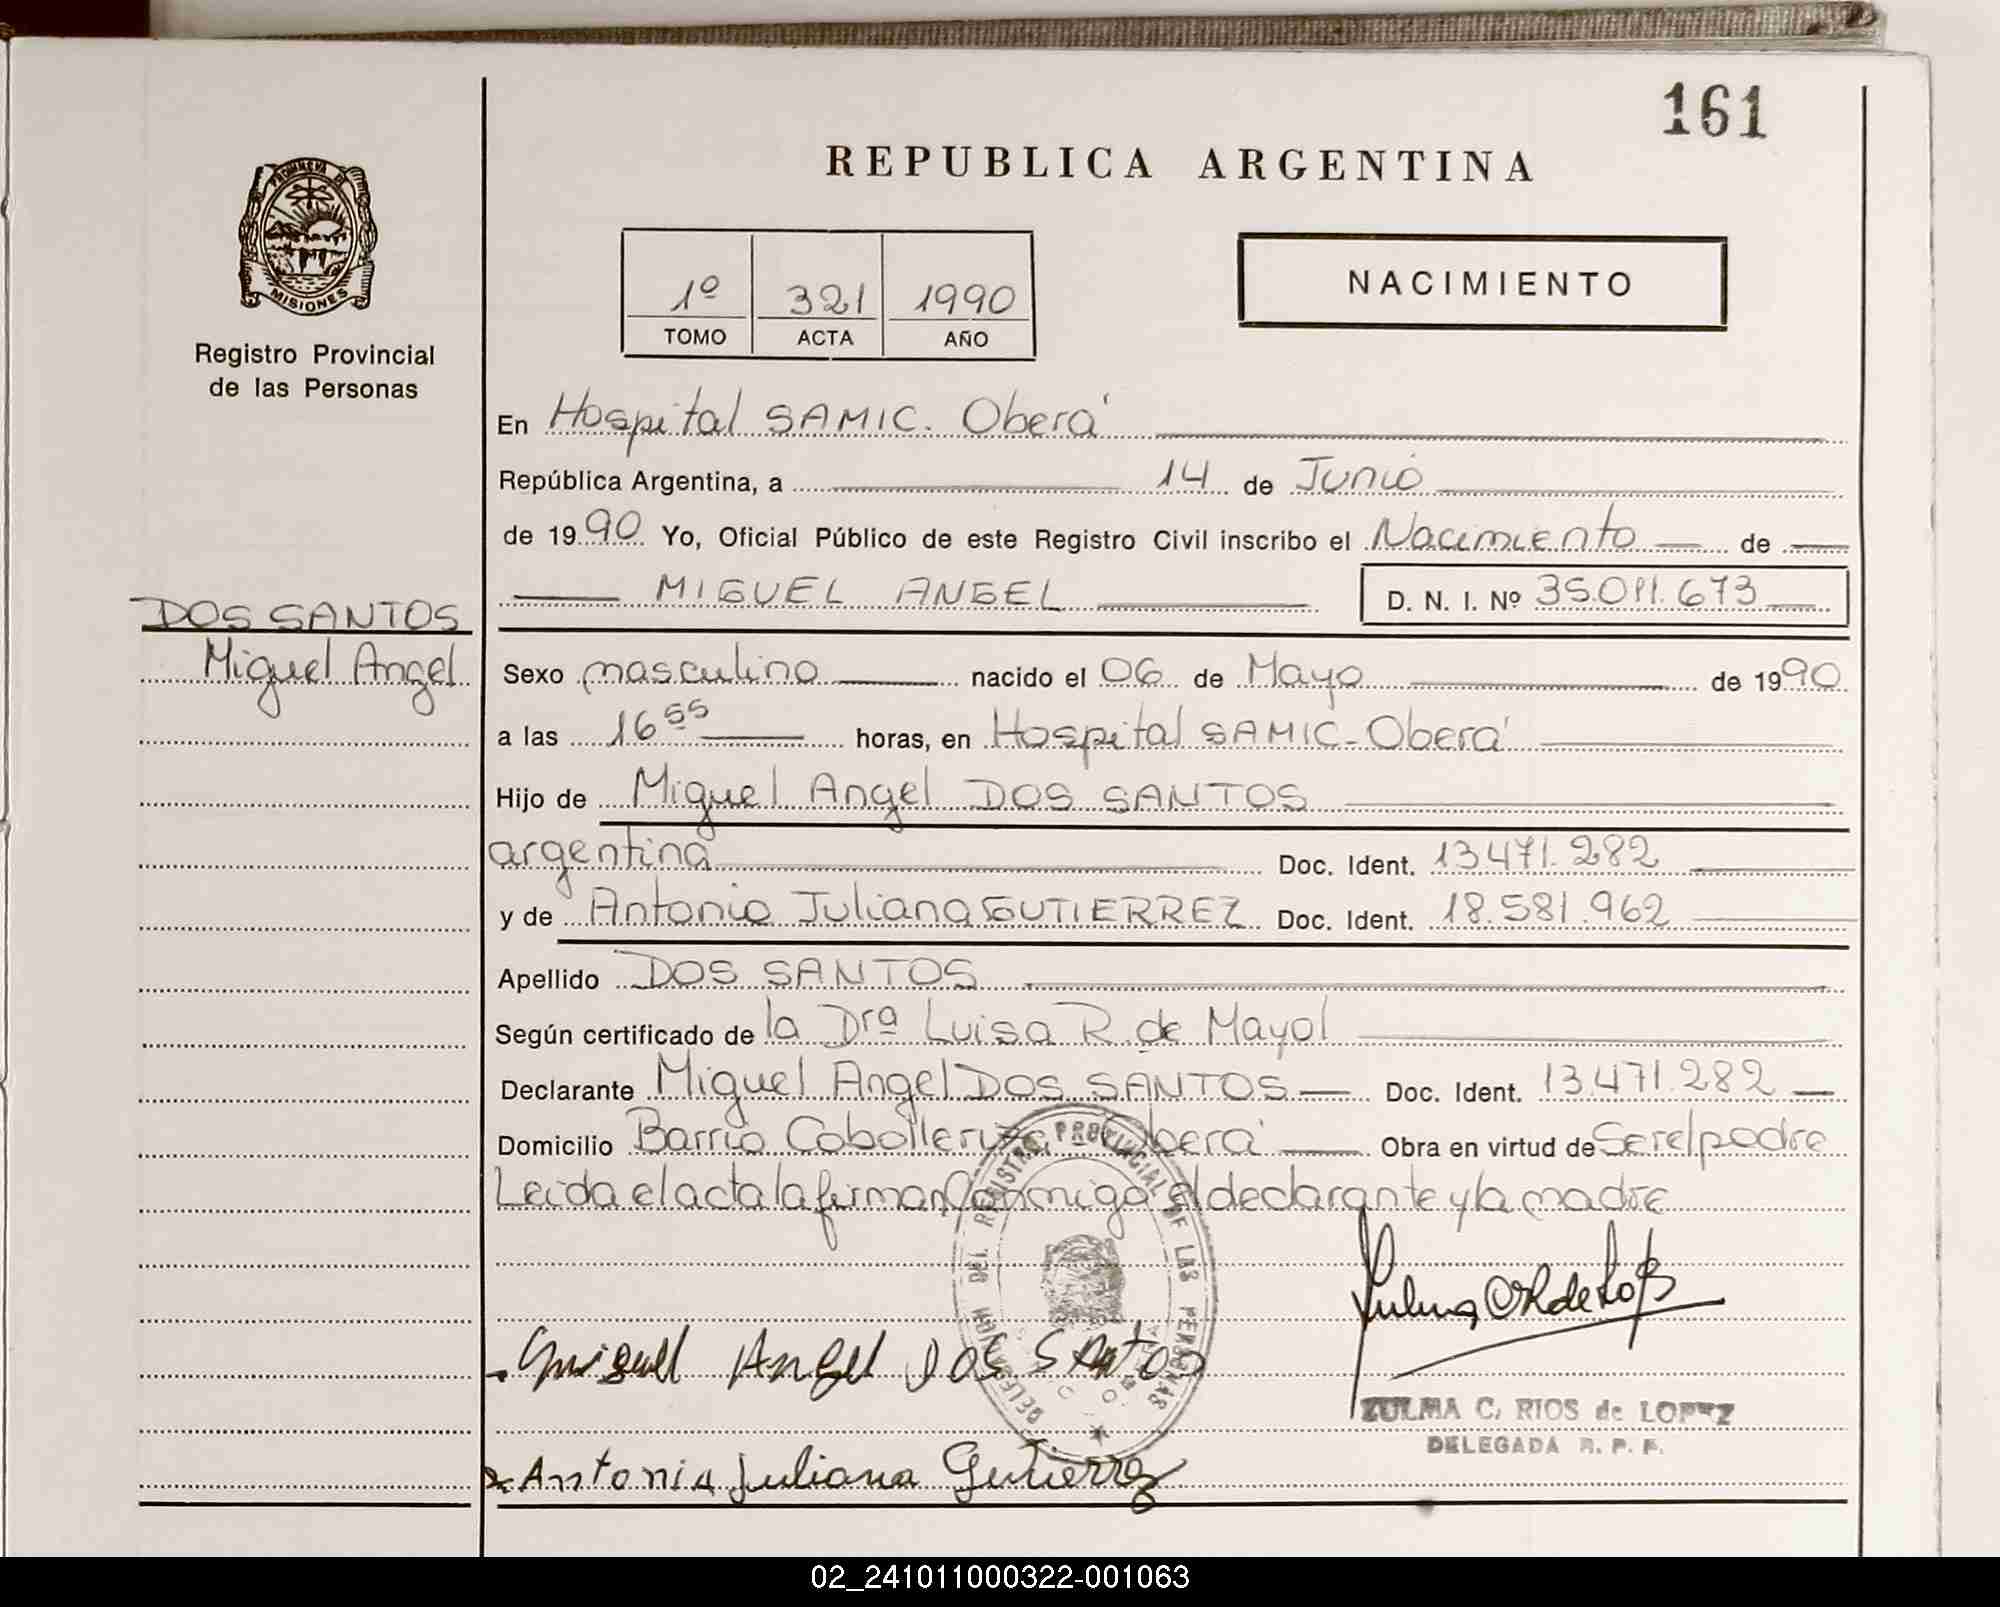 161
REPUBLICA ARGENTINA
PROVINCIA DE
MISIONES
Registro Provincial
de las Personas
1º 321 1990
TOMO ACTA AÑO
NACIMIENTO
En Hospital SAMIC. Oberá
República Argentina, a 14 de Junio
de 1990 Yo, Oficial Público de este Registro Civil inscribo el Nacimiento de
MIGUEL ANGEL D. N. I. Nº 35.011.673
DOS SANTOS
Miguel Angel
Sexo masculino nacido el 06 de Mayo de 1990
a las 16 55 horas, en Hospital SAMIC-Oberá
Hijo de Miguel Angel DOS SANTOS
argentina Doc. Ident. 13.471.282
y de Antonia Juliana GUTIERREZ Doc. Ident. 18.581.962
Apellido DOS SANTOS
Según certificado de la Dra Luisa R. de Mayol
Declarante Miguel Angel DOS SANTOS Doc. Ident. 13.471.282
Domicilio Barrio Caballeriza Oberá Obra en virtud de Ser el padre
Leida el acta la firman Conmigo el declarante y la madre
DELEGACION DEL REGISTRO PROVINCIAL DE LAS PERSONAS
Miguel Angel Dos Santos
ZULMA C. RIOS de LOPEZ
DELEGADA R. P. P.
Antonia Juliana Gutierrez
02_241011000322-001063